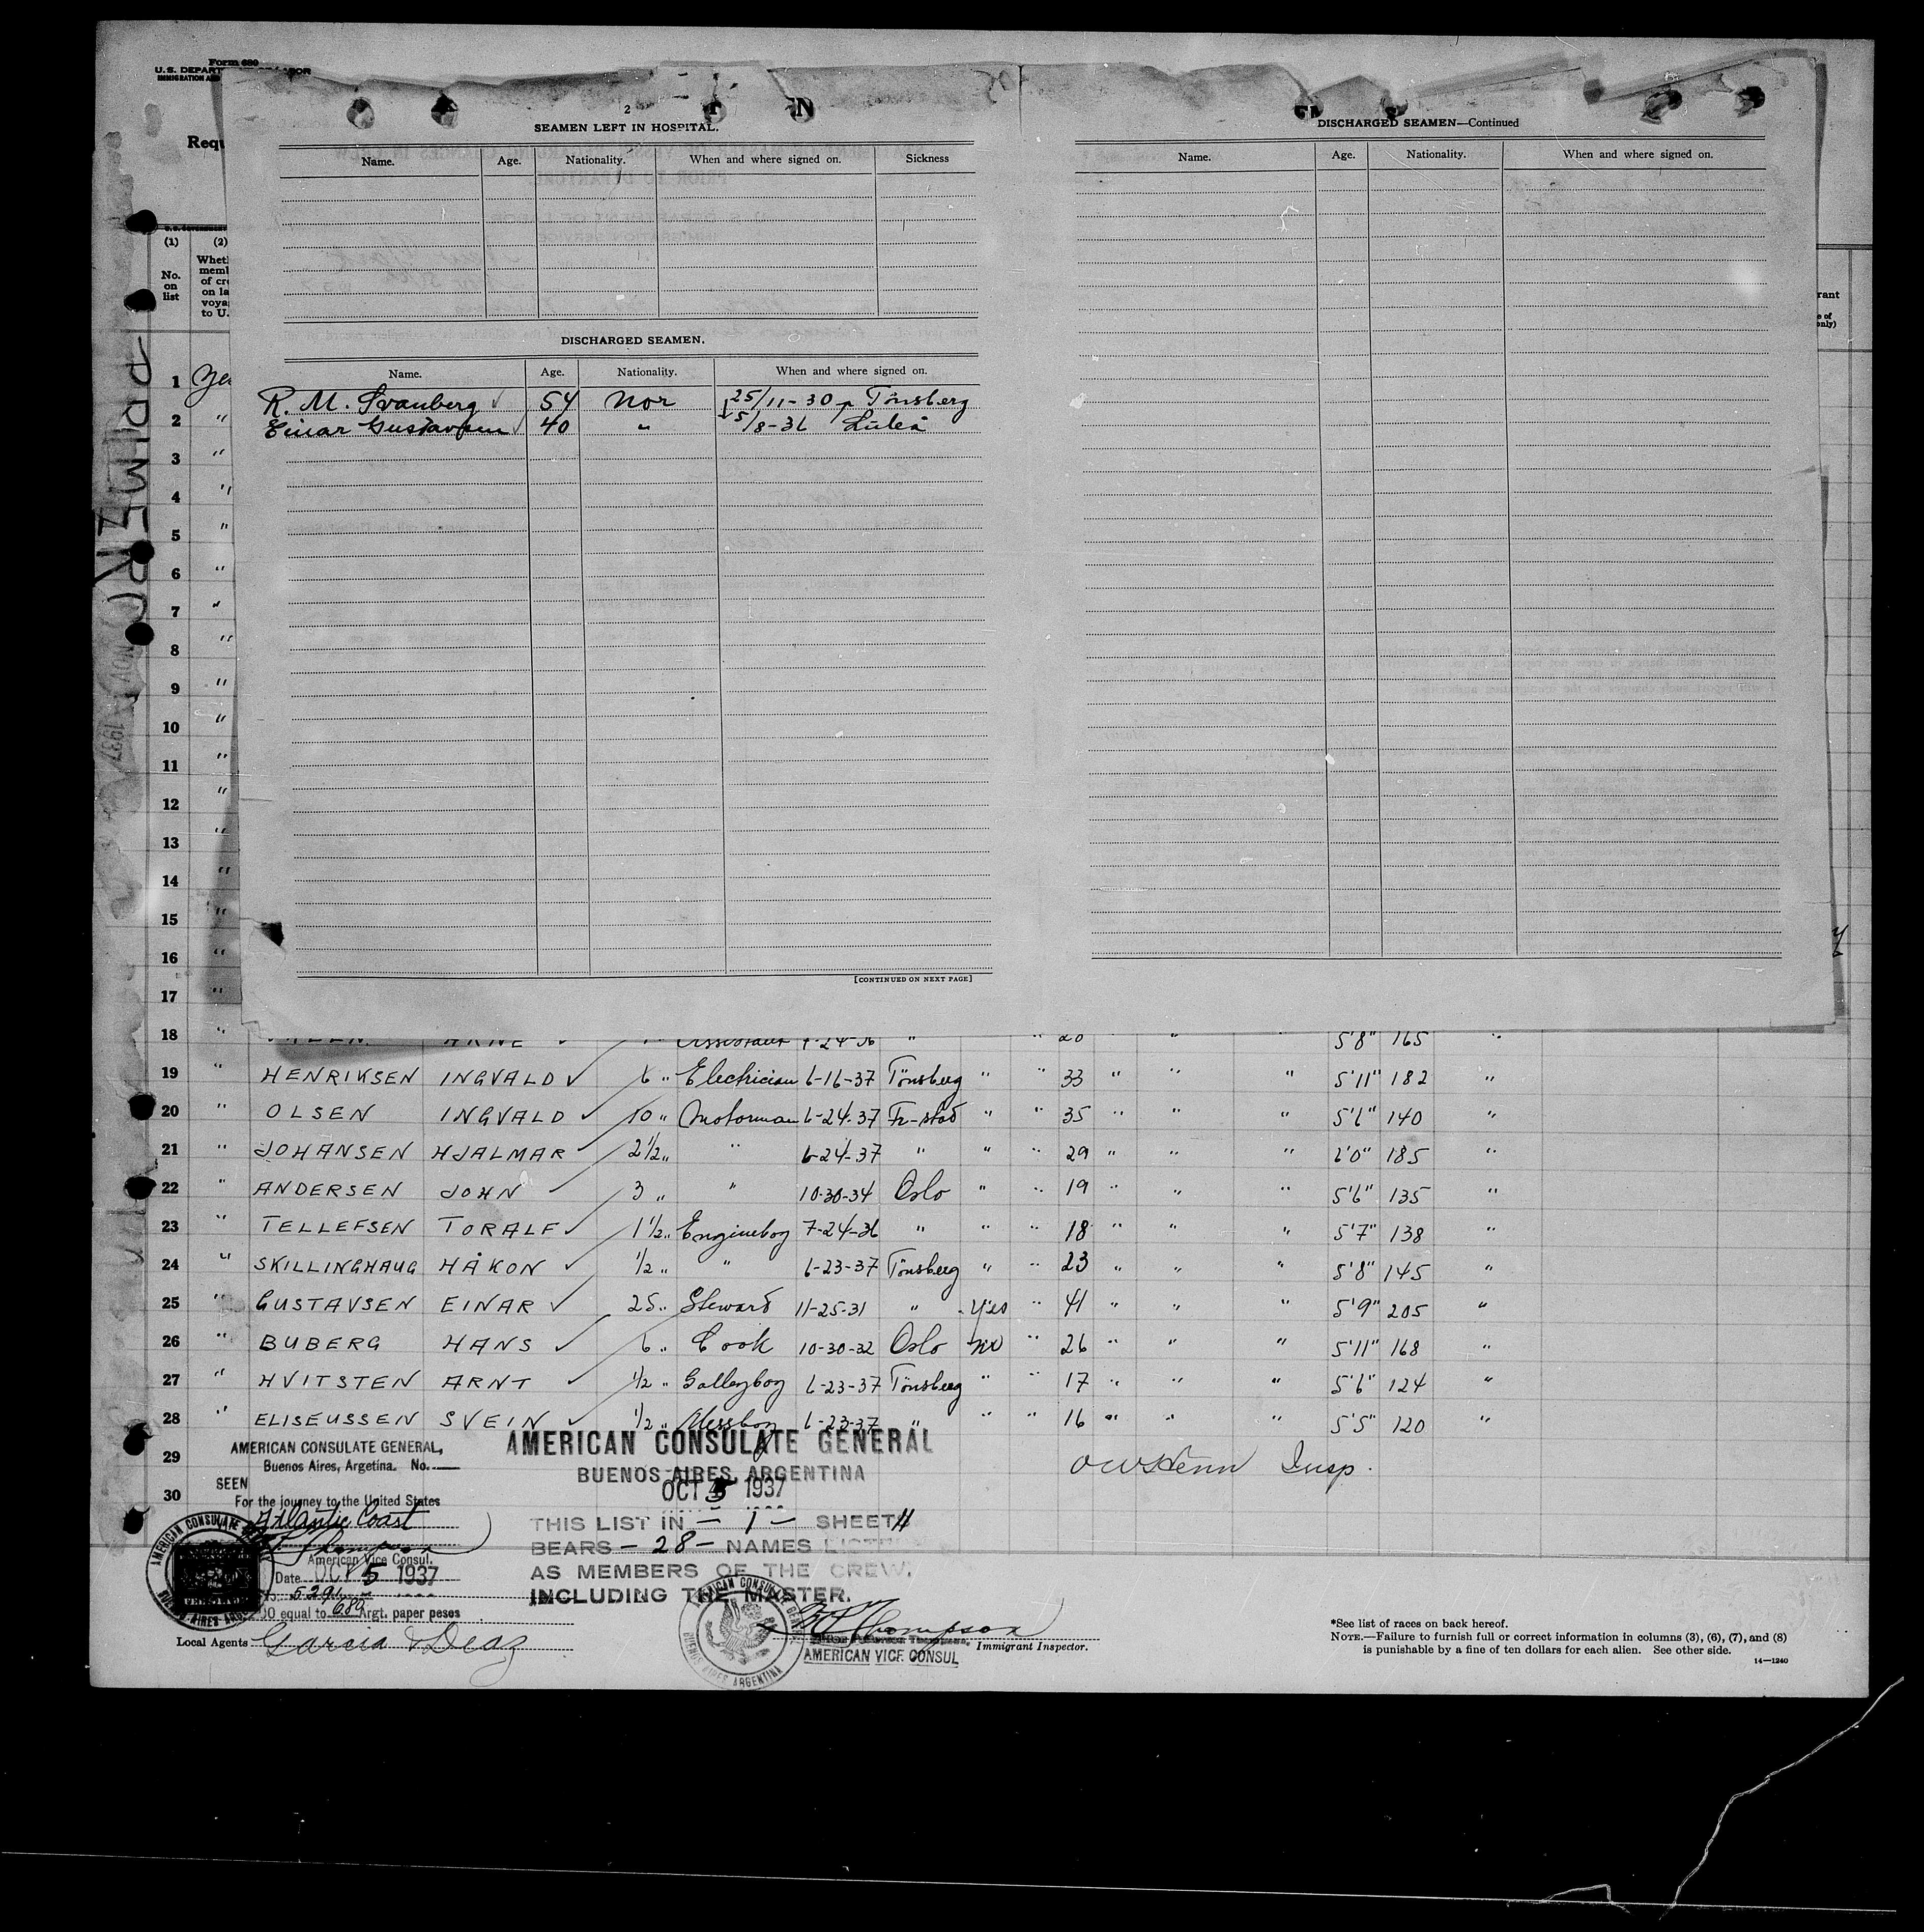 Form 680
U. S. DEPART
Requ
2
SEAMEN LEFT IN HOSPITAL.
Name. Age. Nationality. When and where signed on. Sickness
DISCHARGED SEAMEN.
Name. Age. Nationality. When and where signed on.
R. M. Svanberg 54 Nor 25/11-30 Tönsberg
Einar Gustavsen 40 " 5/8-36 Luleå
[CONTINUED ON NEXT PAGE]
DISCHARGED SEAMEN—Continued
Name. Age. Nationality. When and where signed on.
(1) (2)
No. on list
Wheth
memb
of cre
on la
voya
to U.
PRIMERO
NOV 1937
1 Yes
2 "
3 "
4 "
5 "
6 "
7 "
8 "
9 "
10 "
11 "
12 "
13 "
14 "
15 "
16 "
17 "
18 " ARNE Assistant " " 5'8" 165 "
19 " HENRIKSEN INGVALD 6 " Electrician 6-16-37 Tönsberg " " 33 " " " 5'11" 182 "
20 " OLSEN INGVALD 10 " Motorman 6-24-37 Fr-stad " " 35 " " " 5'6" 140 "
21 " JOHANSEN HJALMAR 2 1/2 " " 6-24-37 " " " 29 " " " 6'0" 185 "
22 " ANDERSEN JOHN 3 " " 10-30-34 Oslo " " 19 " " " 5'6" 135 "
23 " TELLEFSEN TORALF 1 1/2 " Engineboy 7-24-36 " " " 18 " " " 5'7" 138 "
24 " SKILLINGHAUG HÅKON 1/2 " " 6-23-37 Tönsberg " " 23 " " " 5'8" 145 "
25 " GUSTAVSEN EINAR 25 " Steward 11-25-31 " Yes " 41 " " " 5'9" 205 "
26 " BUBERG HANS 6 " Cook 10-30-32 Oslo no " 26 " " " 5'11" 168 "
27 " HVITSTEN ARNT 1/2 " Galleyboy 6-23-37 Tönsberg " " 17 " " " 5'6" 124 "
28 " ELISEUSSEN SVEIN 1/2 " Messboy 6-23-37 " " " 16 " " " 5'5" 120 "
29
30
Insp.
AMERICAN CONSULATE GENERAL,
Buenos Aires, Argetina. No.
SEEN
For the journey to the United States
Atlantic Coast
Thompson
American Vice Consul.
Date OCT 5 1937
equal to Argt. paper pesos
Local Agents Garcia & Diaz
AMERICAN CONSULATE GENERAL
BUENOS AIRES, ARGENTINA
OCT 5 1937
THIS LIST IN - 1 - SHEET
BEARS - 28 - NAMES LISTED
AS MEMBERS OF THE CREW,
INCLUDING THE MASTER.
AMERICAN CONSULATE GENERAL
BUENOS AIRES ARGENTINA
Thompson
Immigrant Inspector.
AMERICAN VICE CONSUL
*See list of races on back hereof.
NOTE.—Failure to furnish full or correct information in columns (3), (6), (7), and (8)
is punishable by a fine of ten dollars for each alien. See other side.
14—1240